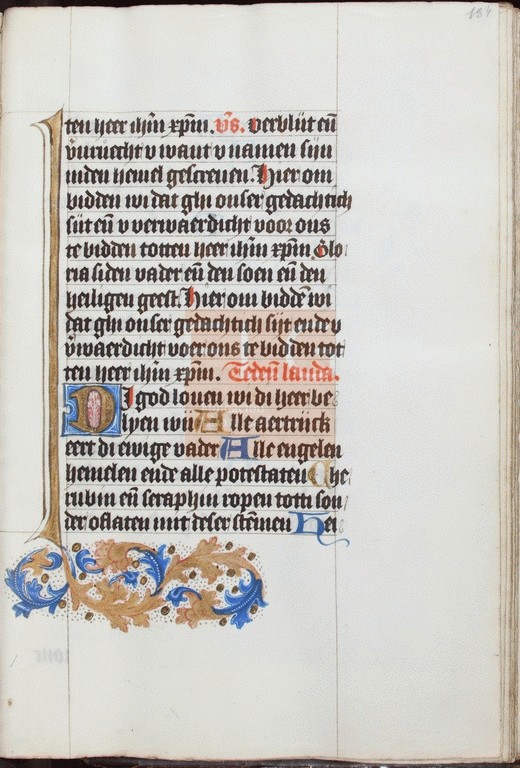 184
ten heer ihm̄ xpm̄. vs̄. verblijt eñ
v̄uruecht v want v namen sijn
inden hemel gescreuen. Hier om
bidden wi dat ghi onser gedachtich
sijt eñ v verwaerdicht voor ons
te bidden totten heer ihm̄ xpm̄ Glo
ria si den vader eñ den soen eñ den
heiligen geest. Hier om biddē wi
dat ghi onser gedachtich sijt ende v
v̄waerdicht voer ons te bidden tot
ten heer ihm̄ xpm̄. Te deū lauda.
Di god louen wi di heer be
lyen wij Alle aertrijck
eert di ewige vader Alle engelen
hemelen ende alle potestaten Che
rubin eñ seraphin ropen totti son
der oflaten mit deser stēmen Hei